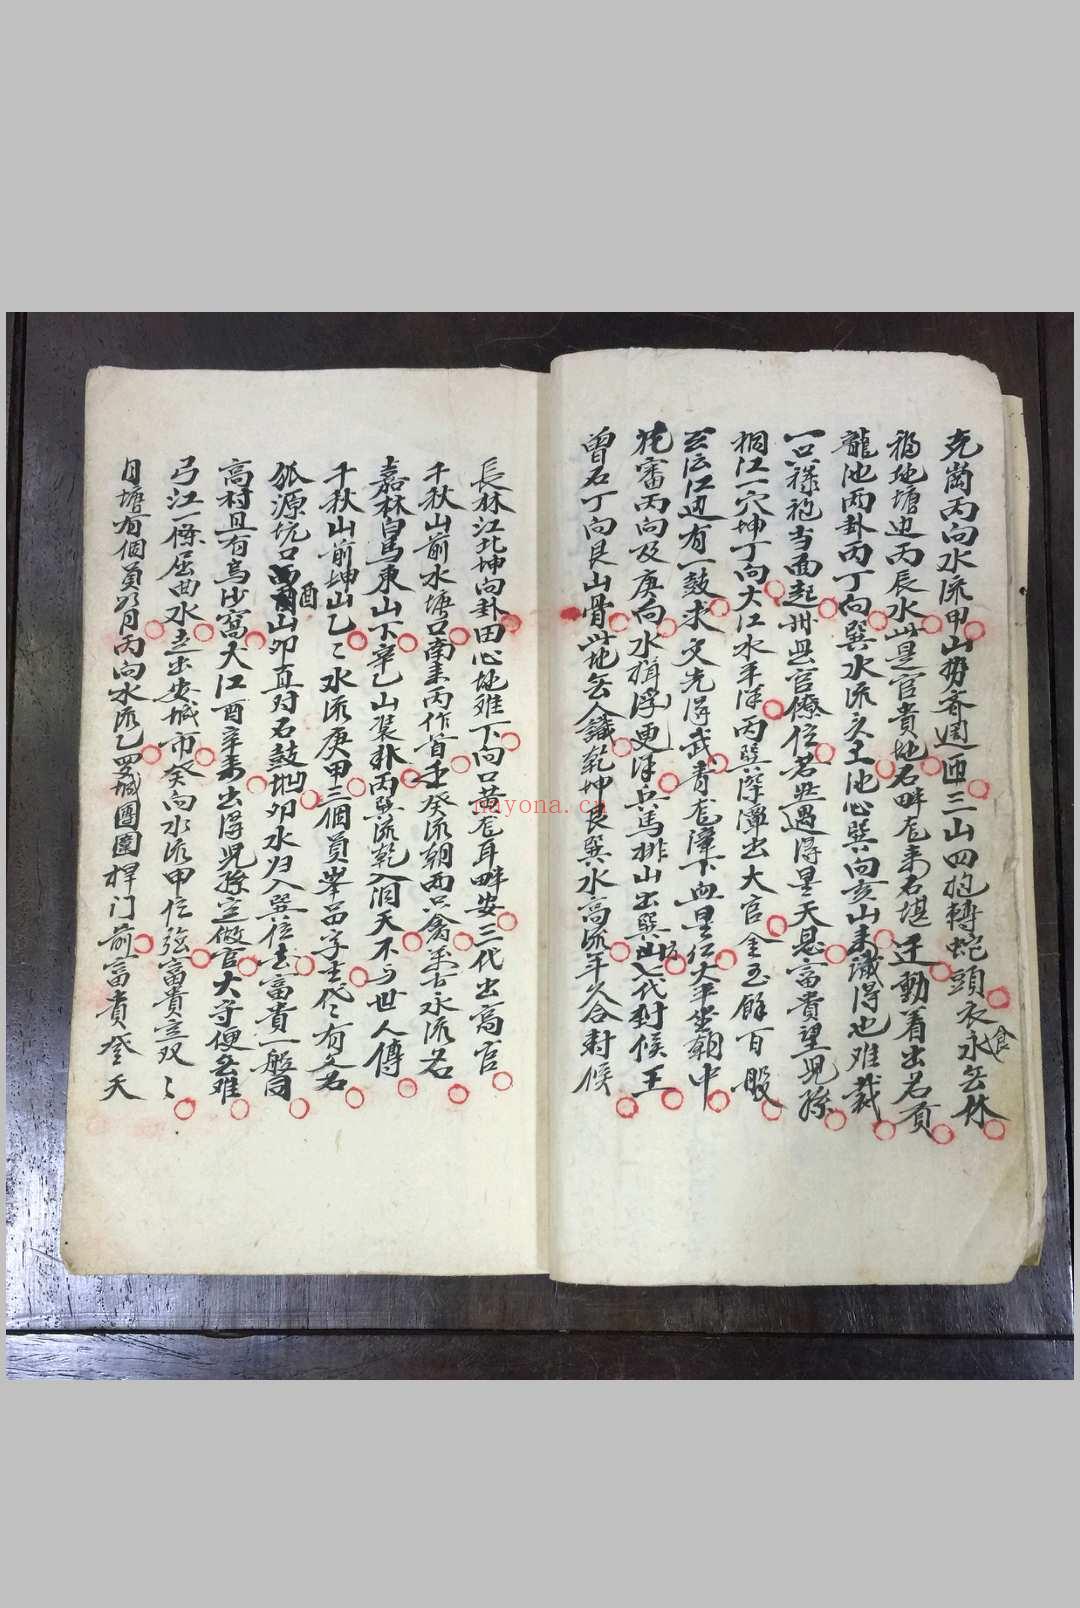 克崗丙向水流甲山势斉週迊三山四抱轉蛇頭衣食永無休
福地塘边丙辰水此是官貴地石畔龙来右堪迁動着出名賁
龍池丙卦丙丁向巽水流久王池心巽向亥山来識得也难裁
一只禄袍当面起卅无官僚位若出遇得是天恩富貴望児孫
桐江一穴坤丁向大江水平洋丙巽深潭出大官金玉餘百般
江边有一鼓求文先得武青龙潭下血星紅太平坐朝中
花審丙向及庚向水揖浮更洋兵馬排山出巽坊七代封候王
曾石丁向艮山骨此地無人識乾坤艮巽水高流年少合封候
長林江北坤向卦田心地难下向口黄龙耳畔安三代出高官
千秋山前水塘口南来丙作首壬癸流朝西只禽案古水流名
嘉林白馬東山下辛乙山裝朴丙巽流乾入洞天不与世人傳
千秋山前坤山乙乙水流庚甲三個員峯品字主代代有文名
狐源坑口酉山卯直对石鼓坳卯水归入巽位去富貴一般同
高村且有烏沙窩犬江酉辛来出得児孫定做官大守便無难
弓江一條屈曲水立出安城市癸向水流甲位強富貴定双双
月塘有個員於月丙向水流乙四城團圓捍门前富貴登天
nayona.cn